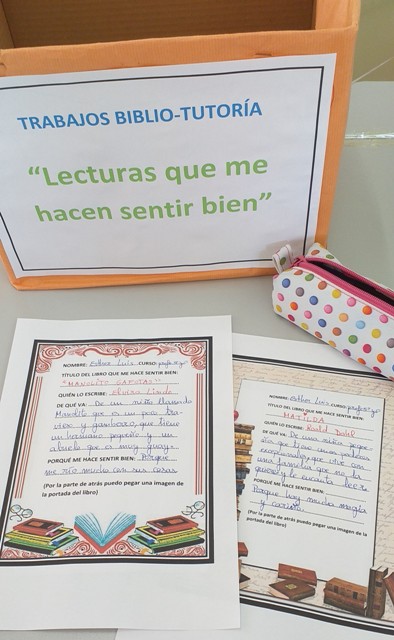 TRABAJOS BIBLIO-TUTORÍA
“Lecturas que me
hacen sentir bien”
NOMBRE: Esther Luis CURSO: profe 2º
TÍTULO DEL LIBRO QUE ME HACE SENTIR BIEN:
"MANOLITO GAFOTAS"
QUIÉN LO ESCRIBE: Elvira Lindo
DE QUÉ VA: De un niño llamado
Manolito que es un poco tra-
vieso y gamberro, que tiene
un hermano pequeño y un
abuelo que es muy
PORQUE ME HACE SENTIR BIEN: Porque
me río mucho con sus cosas
(Por la parte de atrás puedo pegar una imagen de
la portada del libro)
NOMBRE: Esther Luis CURSO: profe 2º
TÍTULO DEL LIBRO QUE ME HACE SENTIR BIEN:
MATILDA
QUIÉN LO ESCRIBE: Roald Dahl
DE QUÉ VA: De una niña peque-
ña que tiene unos poderes
excepcionales que vive con
una familia que no la
quiere y le encanta leer
PORQUE ME HACE SENTIR BIEN:
Porque hay mucha magia
y cariño.
(Por la parte de atrás puedo pegar una imagen de la
portada del libro)